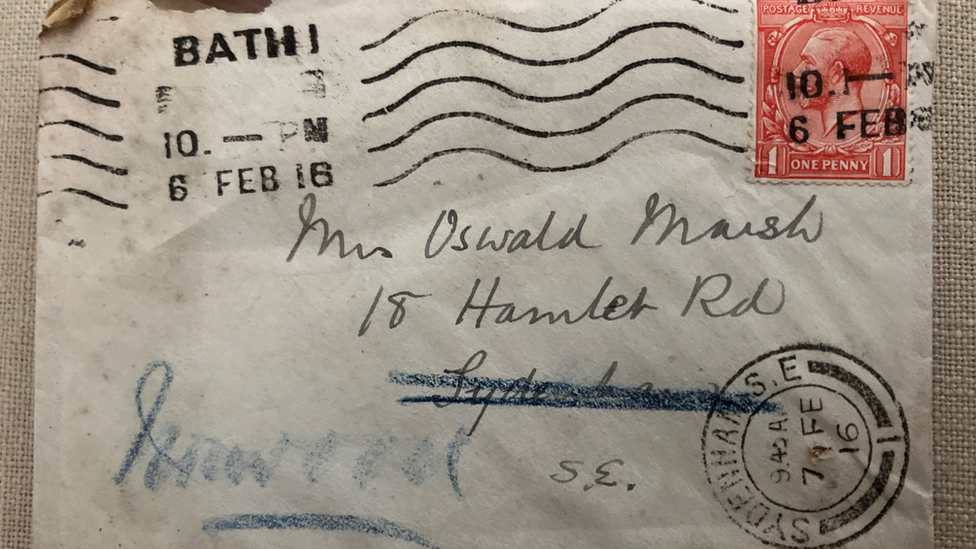 BATH 1
10. — PM
6 FEB 16
POSTAGE REVENUE
10. —
6 FEB
1 ONE PENNY 1
Mrs Oswald Marsh
18 Hamlet Rd
Sydenham
Norwood
S.E.
SYDENHAM S.E
9.45 AM
7 FE
16